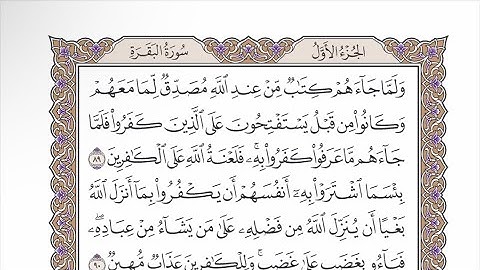 الجُزْءُ الأَوَّلُ سُورَةُ البَقَرَةِ
وَلَمَّا جَآءَهُمْ كِتَٰبٌ مِّنْ عِندِ ٱللَّهِ مُصَدِّقٌ لِّمَا مَعَهُمْ
وَكَانُوا۟ مِن قَبْلُ يَسْتَفْتِحُونَ عَلَى ٱلَّذِينَ كَفَرُوا۟ فَلَمَّا
جَآءَهُم مَّا عَرَفُوا۟ كَفَرُوا۟ بِهِۦ ۚ فَلَعْنَةُ ٱللَّهِ عَلَى ٱلْكَٰفِرِينَ ٨٩
بِئْسَمَا ٱشْتَرَوْا۟ بِهِۦٓ أَنفُسَهُمْ أَن يَكْفُرُوا۟ بِمَآ أَنزَلَ ٱللَّهُ
بَغْيًا أَن يُنَزِّلَ ٱللَّهُ مِن فَضْلِهِۦ عَلَىٰ مَن يَشَآءُ مِنْ عِبَادِهِۦ ۖ
فَبَآءُو بِغَضَبٍ عَلَىٰ غَضَبٍ ۚ وَلِلْكَٰفِرِينَ عَذَابٌ مُّهِينٌ ٩٠